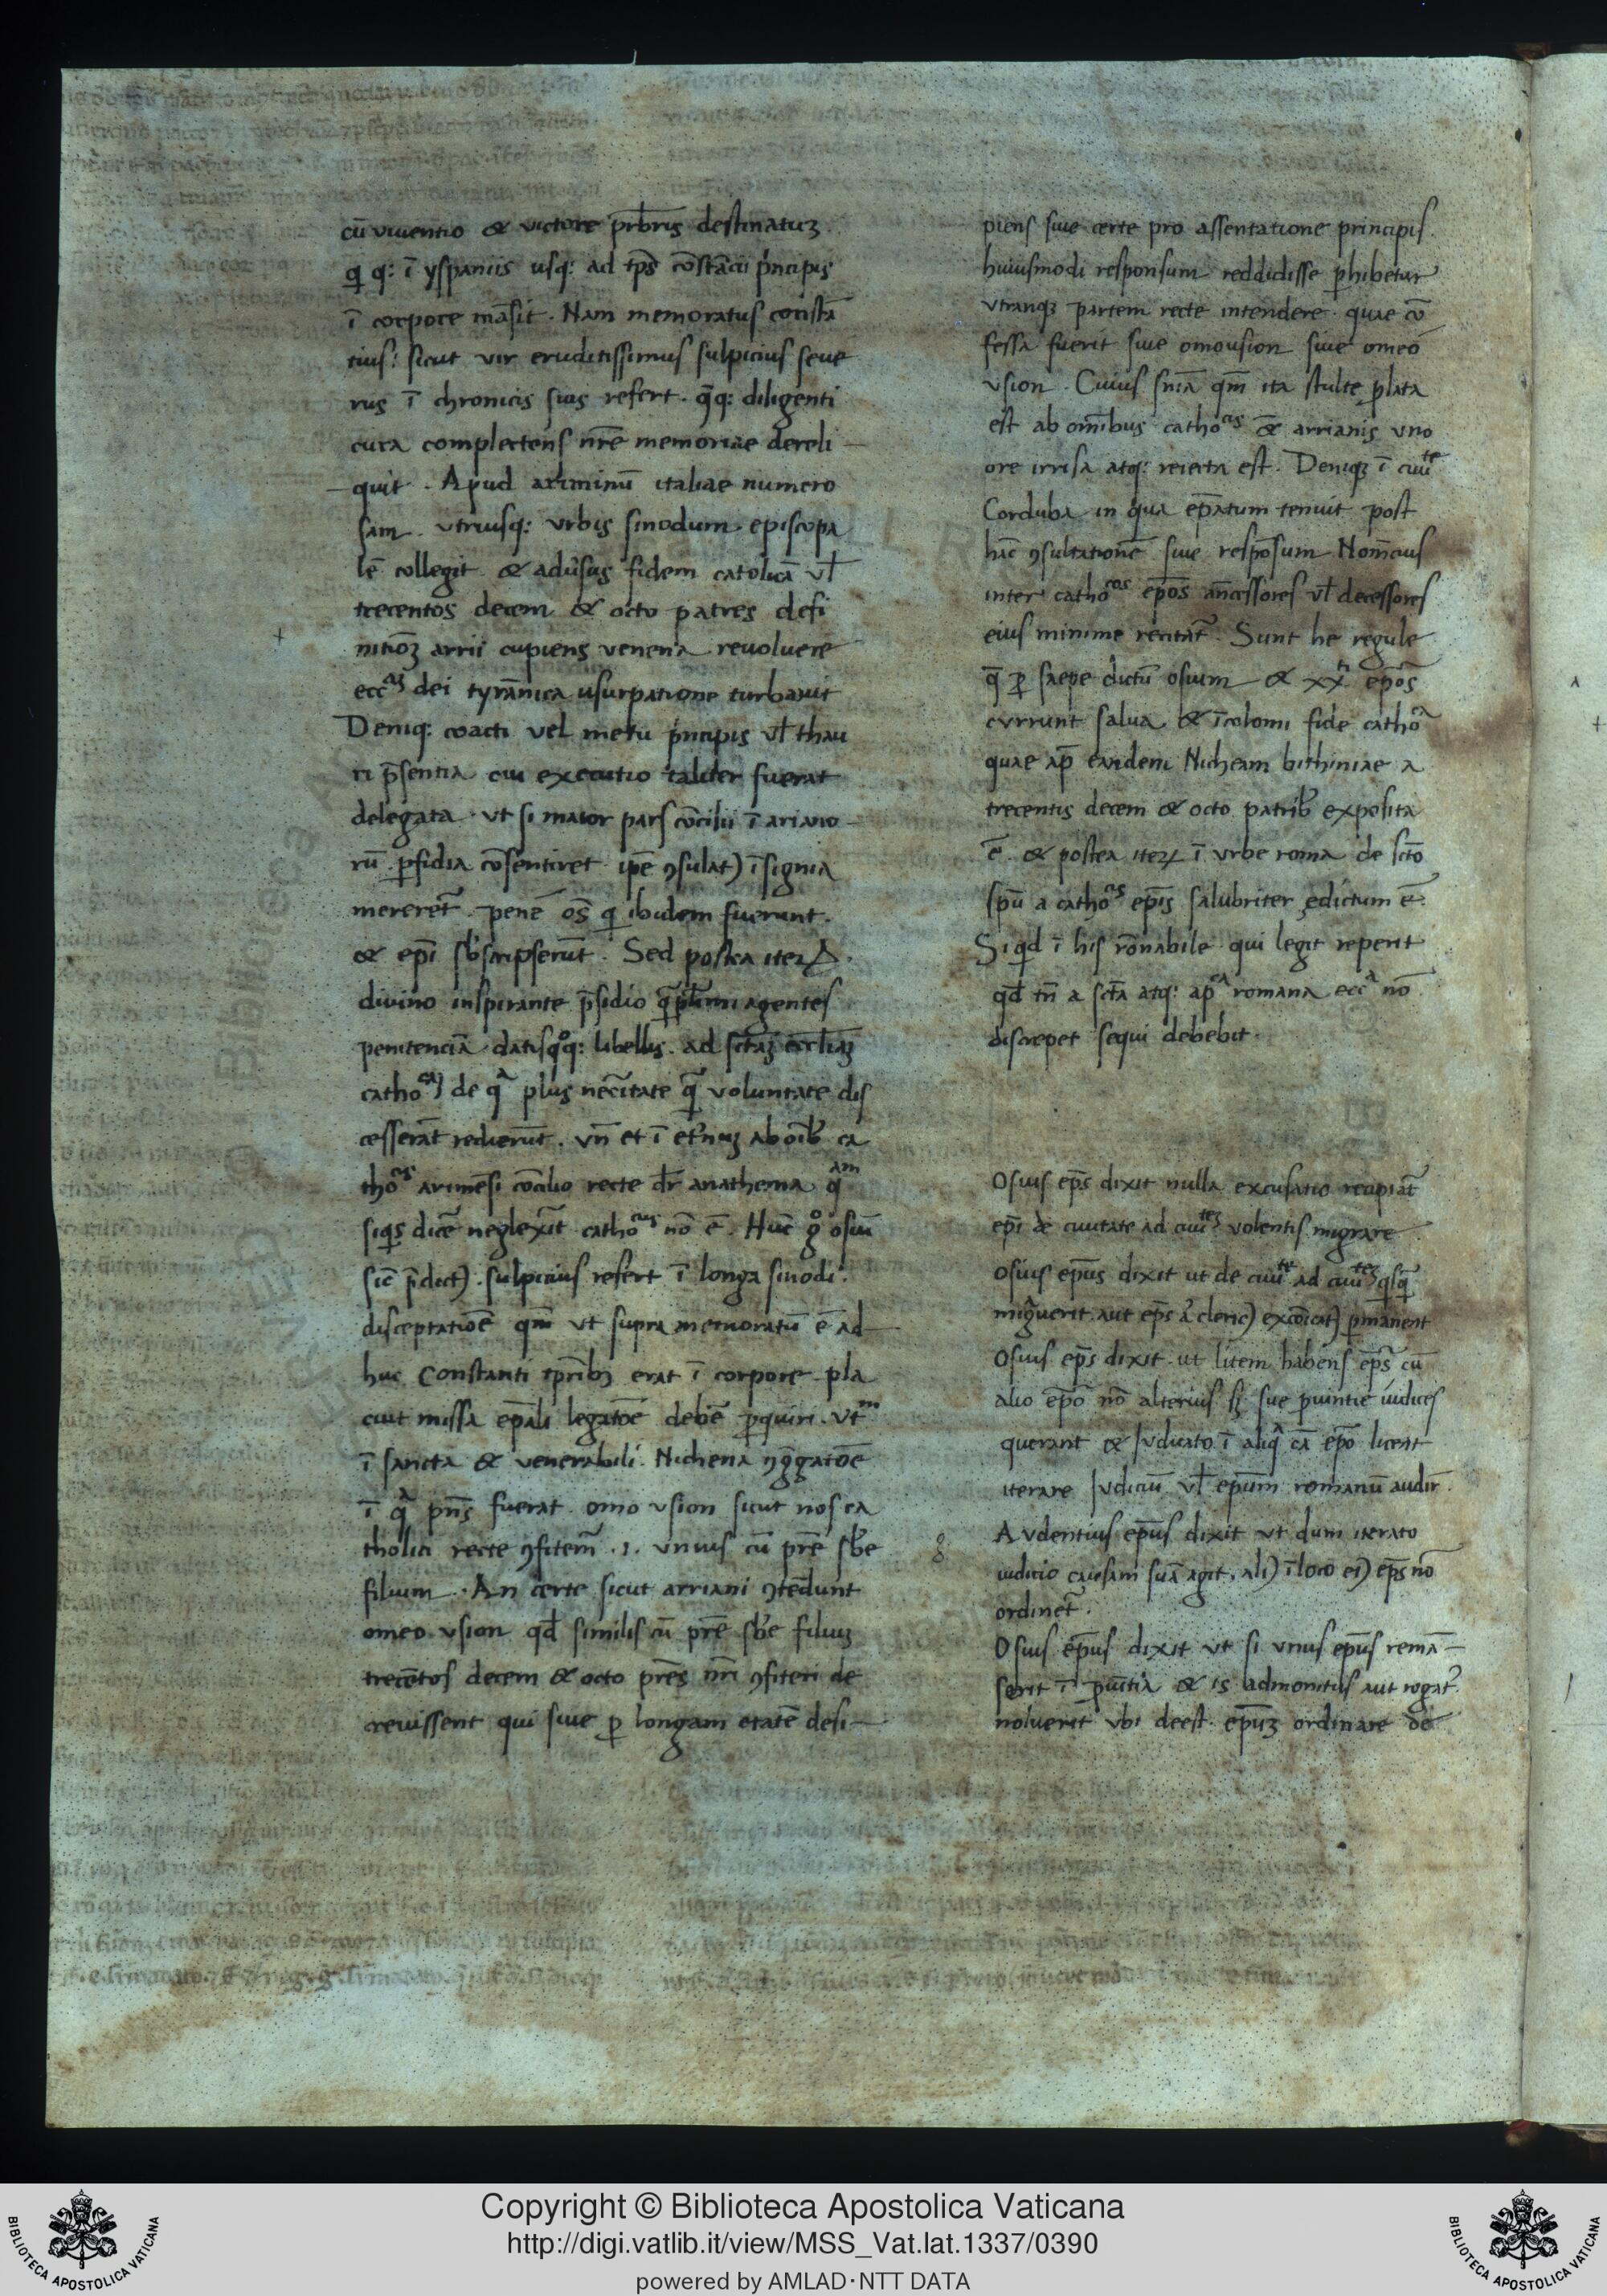 cū viventio & victore pr̄bris destinatuꝫ
qi q: ī yspaniis usq: ad tp̄s cōstācii pͥncipis
ī corpore māsit. Nam memoratus cōnstā
tius: sicut vir eruditissimus sulpicius seve
rus ī chronicis suis refert. q̄q: diligenti
cura complectens nr̄e memoriae dereli
quit. Apud ariminū italiae numero
sam. utriusq: urbis sinodum episcopa
lē collegit & adūsus fidem catolicā vl̄
trecentos decem & octo patres defi
nitiōꝫ arrii cupiens venena revoluere
ecc᷒aꝫ dei tyrānica usurpatione turbavit
Deniq: coacti vel metu pͥncipis vl̄ thau
ri p̄sentia cui executio taliter fuerat
delegata. ut si maior pars cōcilii ī ariano
rū ꝑfidia cōsentiret ip̄e ꝯsulatꝰ īsignia
mereret᷑. penē oēs qi ibidem fuerunt.
& ep̄i sb̄scripserūt. Sed postea iteꝝ.
divino inspirante p̄sidio agentes
penitenciā datisq: libellis. ad sctāꝫ eccl̄iaꝫ
cathoᶜᵃ de qᵃ plus nec̄itate qᵃ voluntate dis
cesserāt redierūt. Vn̄ et ī et̄nuꝫ ab oīb ca
thoᶜⁱˢ arimēsi cōcilio recte dr̄ anathema qᵃᵐ
siqis dicē neglex̄it cathoᶜᵘˢ nō ē. Hūc gͦ osiū
sic̄ p̄dictꝰ. sulpicius refert ī longa sinodi.
disceptatiōē qm̄ ut supra memoratū ē ad
huc Constanti tp̄ribꝫ erat ī corpore pla
cuit missa ep̄ali legatōē debē ꝑquiri. utᵐ
ī sancta & venerabili. Nichena ꝯḡgatōē
ī qᵃ pn̄s fuerat. omo usion sicut nos ca
tholici recte ꝯfitem᷑ .i. unius cū pr̄e sb̄e
filium. An certe sicut arriani ꝯtēdunt
omeo usion qd̄ similis cū pr̄e sb̄e filiuꝫ
trecētos decem & octo pr̄es nr̄i ꝯfiteri de
crevissent qui sive ꝑ longam etatē desi
piens sive certe pro assentatione principis.
huiusmodi responsum reddidisse ꝑhibetur
utranqꝫ partem recte intendere. quae cō
fessa fuerit sive omousion sive omeo
usion. Cuius sn̄ia qm̄ ita stulte ꝓlata
est ab om̄ibus cathoᶜⁱˢ & arrianis uno
ore irrisa atq: reiecta est. Deniqꝫ ī civiᵗᵉ
Corduba in qua ep̄atum tenuit post
hāc ꝯsultationē sive respōsum Nom̄ eius
inter cathoᶜᵒˢ ep̄os ān̄cessores vl̄ decessores
eius minime recitat᷑. Sunt he regule
q̄ ꝑ saepe dictū osium & xxᵗⁱ ep̄os
currunt salva & īcolomi fide cathoᶜᵃ
quae ap̄ eandem Nicheam bithiniae a
trecentis decem & octo patrib exposita
ē. & postea iteꝝ ī urbe roma de sctō
sp̄u a cathoᶜⁱˢ ep̄is salubriter edictum ē.
Si qid ī his rōnabile qui legit reperit
qd̄ tn̄ a sctā atq: apᶜᵃ romana eccᵃ nō
discrepet sequi debebit.
Osius ep̄s dixit nulla excusatio recipiat᷑
ep̄i de civitate ad civiᵗᵉꝫ volentis migrare
Osius ep̄us dixit ut de civiᵗᵉ ad civiᵗᵉꝫ qisqi
migᵃverit aut ep̄s aͧ clericꝰ excōicatꝰ ꝑmanent
Osius ep̄s dixit. ut litem habens ep̄s cū
alio ep̄o nō alterius sꝫ sue ꝓvintie iudices
querant & Iudicato ī aliqᵃ cā ep̄o liceat
iterare Iudiciū vl̄ ep̄um romanū audir̄.
Audentius ep̄us dixit ut dum iterato
iudicio causam suā agit, aliꝰ ī loco eiꝰ ep̄s nō
ordinet᷑.
Osius ep̄us dixit ut si unus ep̄us remā
serit ī ꝓvītia & is admonitus aut rogat᷑
noluerit ubi deest ep̄uꝫ ordinare de
Copyright © Biblioteca Apostolica Vaticana
http://digi.vatlib.it/view/MSS_Vat.lat.1337/0390
powered by AMLAD·NTT DATA
BIBLIOTECA APOSTOLICA VATICANA
BIBLIOTECA APOSTOLICA VATICANA